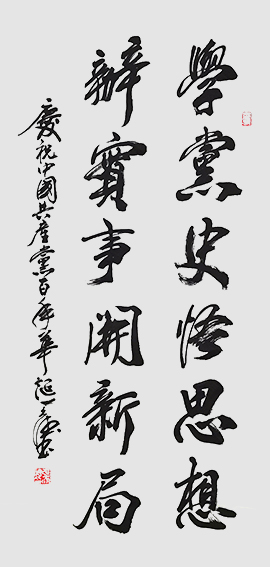 學黨史悟思想
辦實事開新局
慶祝中國共產黨百年華誕